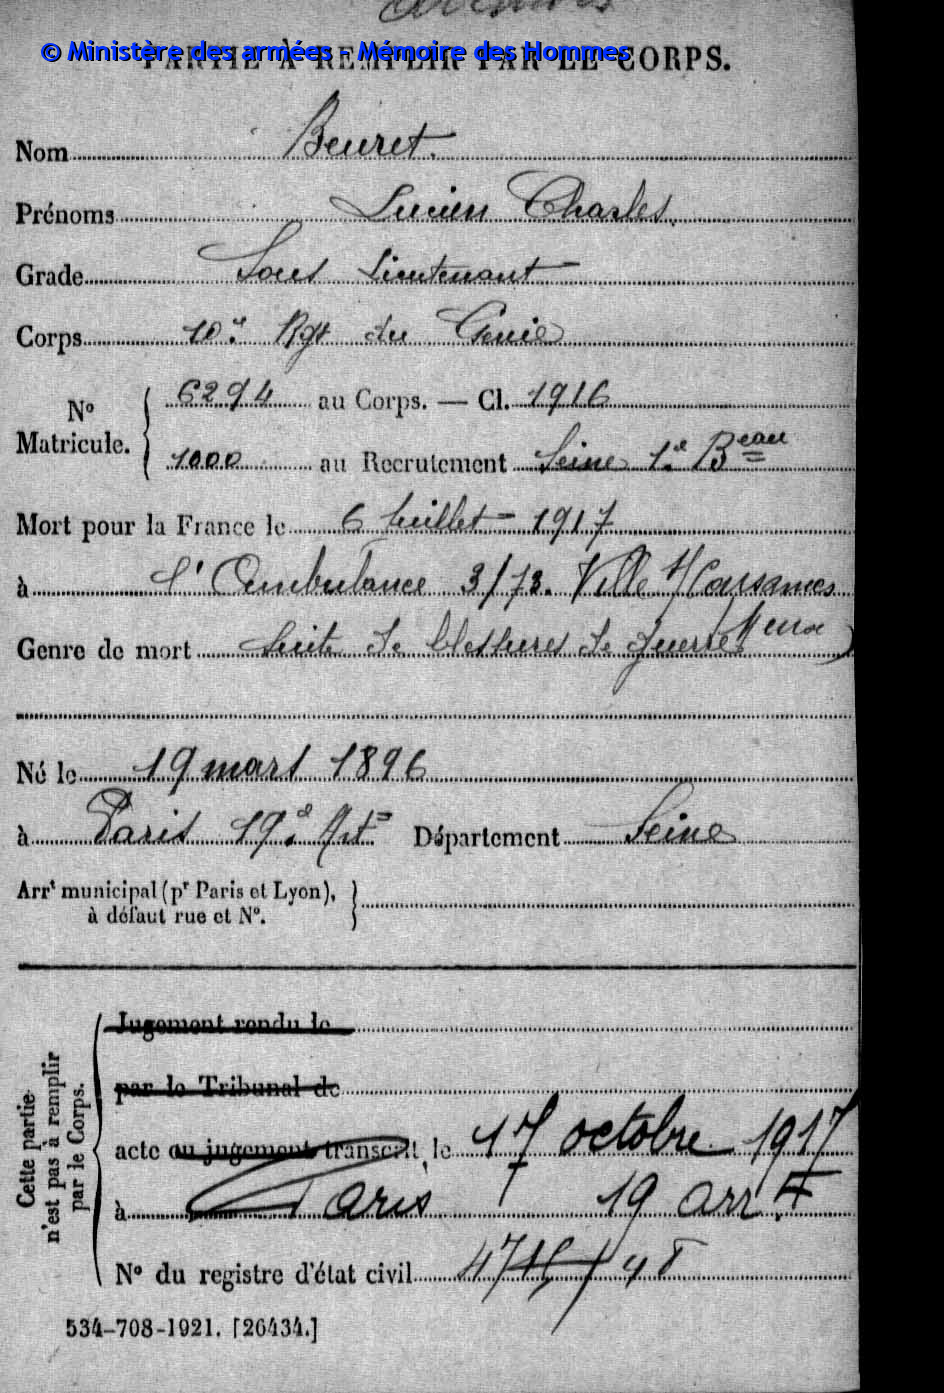 © Ministère des armées - Mémoire des Hommes
PARTIE À REMPLIR PAR LE CORPS.
Nom Beuret.
Prénoms Lucien Charles.
Grade Sous Lieutenant
Corps 10e Rgt du Génie
No Matricule. 6294 au Corps. — Cl. 1916
1000 au Recrutement Seine 1e Beau
Mort pour la France le 6 Juillet 1917
à l'Ambulance 3/73. Ville
Meuse)
Genre de mort suite de blessures de guerre
Né le 19 mars 1896
à Paris 19e Art Département Seine
Arrt municipal (pr Paris et Lyon),
à défaut rue et No.
Cette partie
n'est pas à remplir
par le Corps.
Jugement rendu le
par le Tribunal de
acte ou jugement transcrit le 17 octobre 1917
à Paris 19 arrt
No du registre d'état civil
534-708-1921. [26434.]